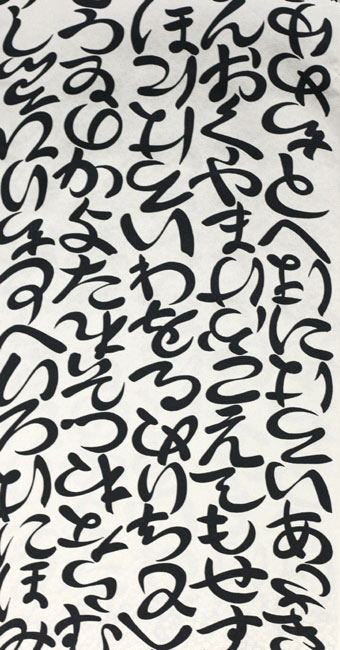 ゆきとへほにはといあさき
んおくやまけふこえてもせす
ほりはといわをるゆりちぬし
うゐのかよたれそつねならむ
しひいきすへいろはにほみ